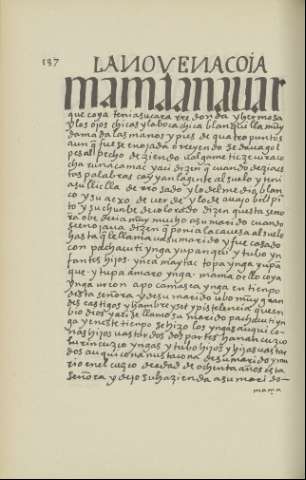 137
LA NOVENA COIA
mama ana uar
que coya tenia su cara rredonda y hermosa
y los ojos chicos y la boca chica blanquilla muy
dama da las manos y pies de quatro puntos
aun q̃ fue enojada o rreyendo se daua gol
pes al pecho deziendo
cha runa camas yari dizen q̃ cuando dezia es
tas palabras cayan la gente al suelo y teni
a su lliclla de rrosado y lo del medio blan
co y su acxo de uerde y lo de auajo
to y su chunbe de colorado dizen q̃ esta seño
ra obedecia muy mucho a su marido cuando
se enojaua dizen q̃ ponia la cauesa al suelo
hasta q̃ le llamaua su marido y fue casado
con pachacuti ynga yupanqui y tubo yn
fantes hijos ynca maytac topa ynga yupan
que y tupa amaro ynga mama ocllo coya
ynga urcon apo camasca ynga en tienpo
desta señora y de su marido ubo muy gran
des castigos y hambre y sed y pistelencia que en
bio dios y aci se llamo su marido pachacuti yn
ga y en este tienpo se hizo los yngas auquicon
nas hijos uastardos dos partes hanan cuzco
lurin cuzco yngas y tubo hijos y hijas uastar
dos auquiconas nustacona de su marido y mu
rio en el cuzco de edad de ochenta años esta
señora y dejo su hazienda a su marido
mama